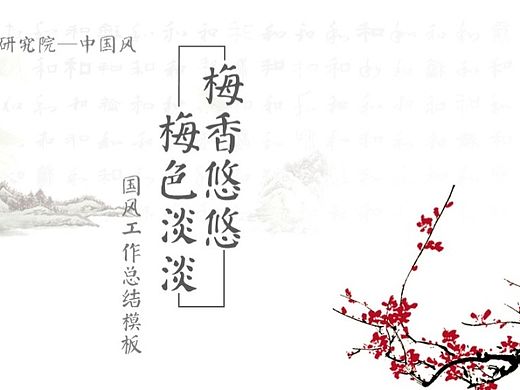 研究院—中国风
梅香悠悠
梅色淡淡
国风工作总结模板